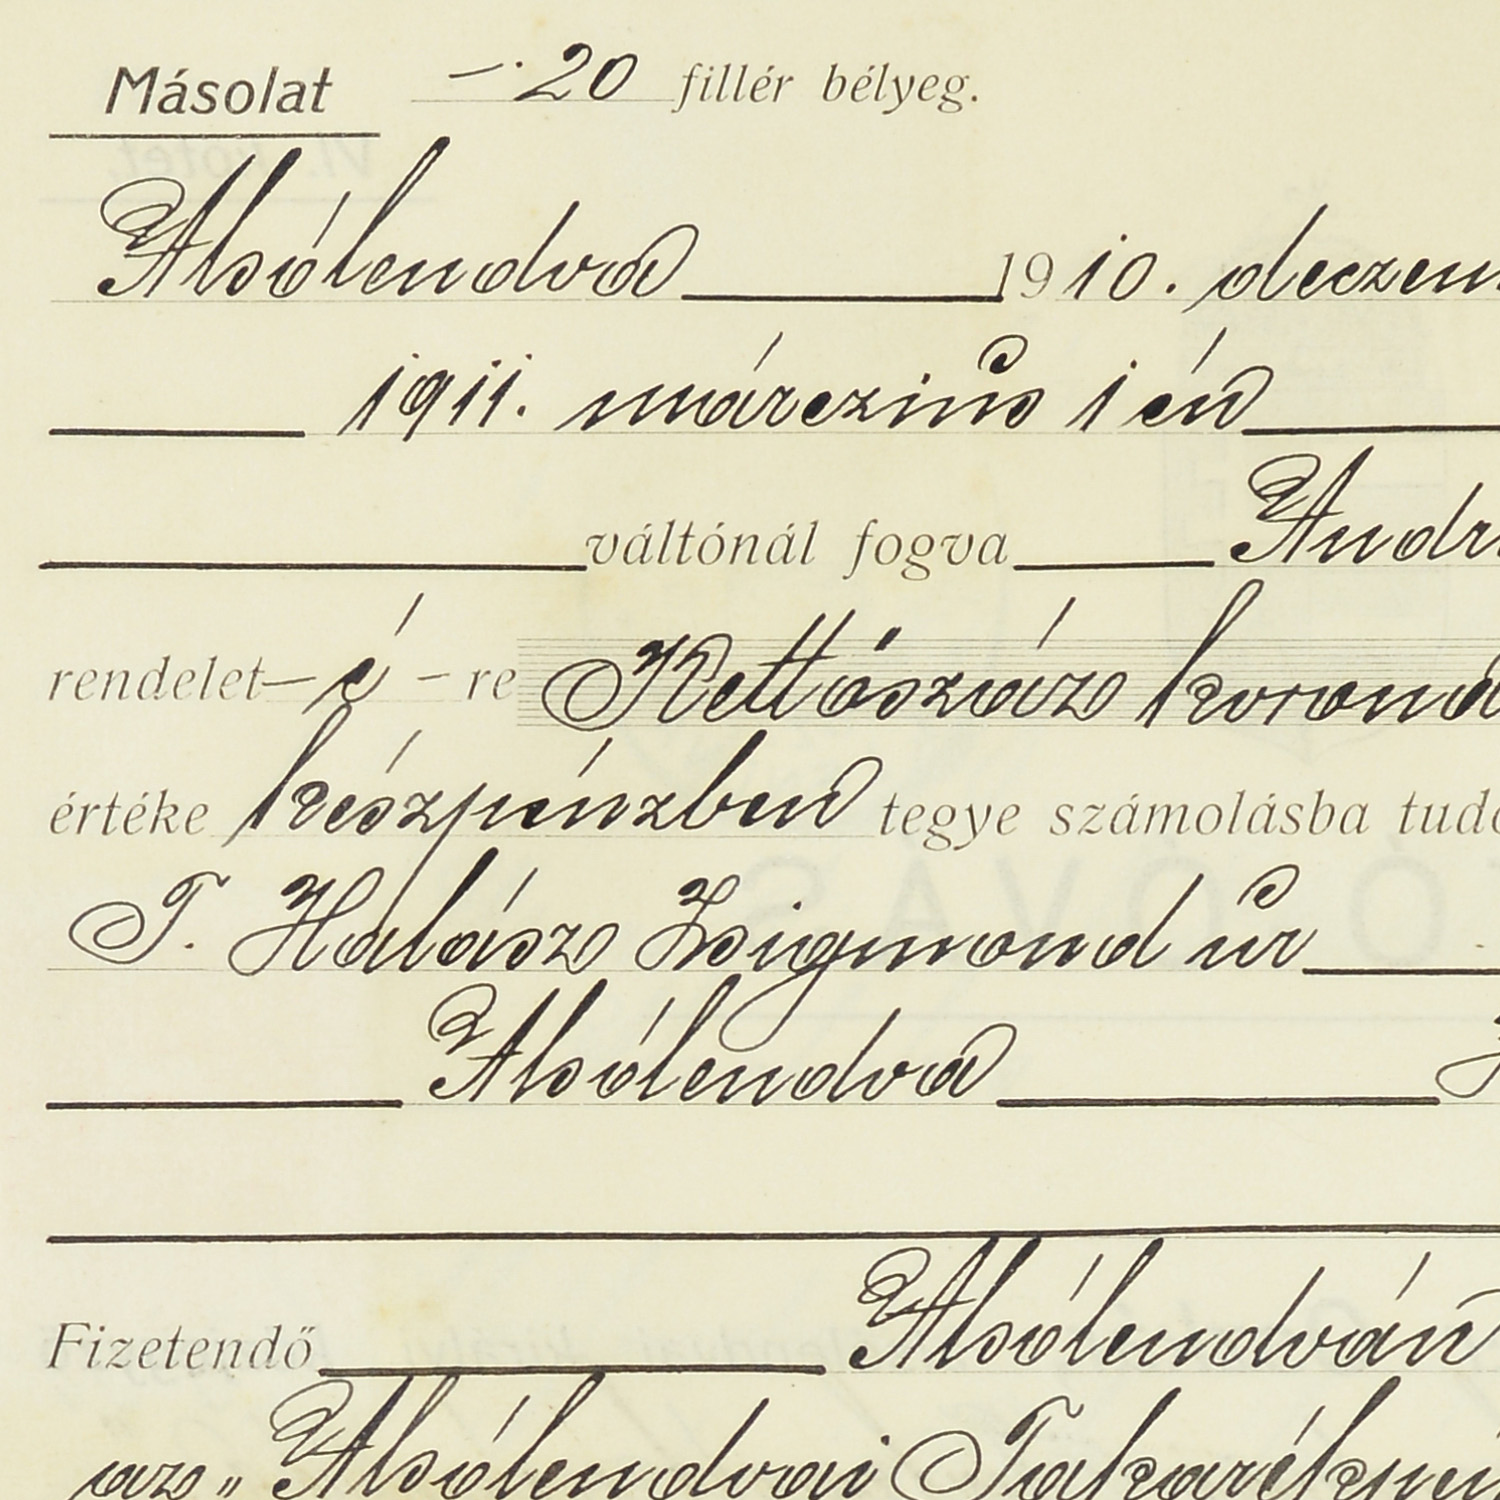 Másolat —.20 fillér bélyeg.
Alsólendva 1910. deczem
1911. márczius 1 én
váltónál fogva Andr
rendelet—é—re Kettőszáz korona
értéke készpénzben tegye számolásba tudó
T. Halász Zsigmond úr
Alsólendva
Fizetendő Alsólendván
az „Alsólendvai Takarékpén